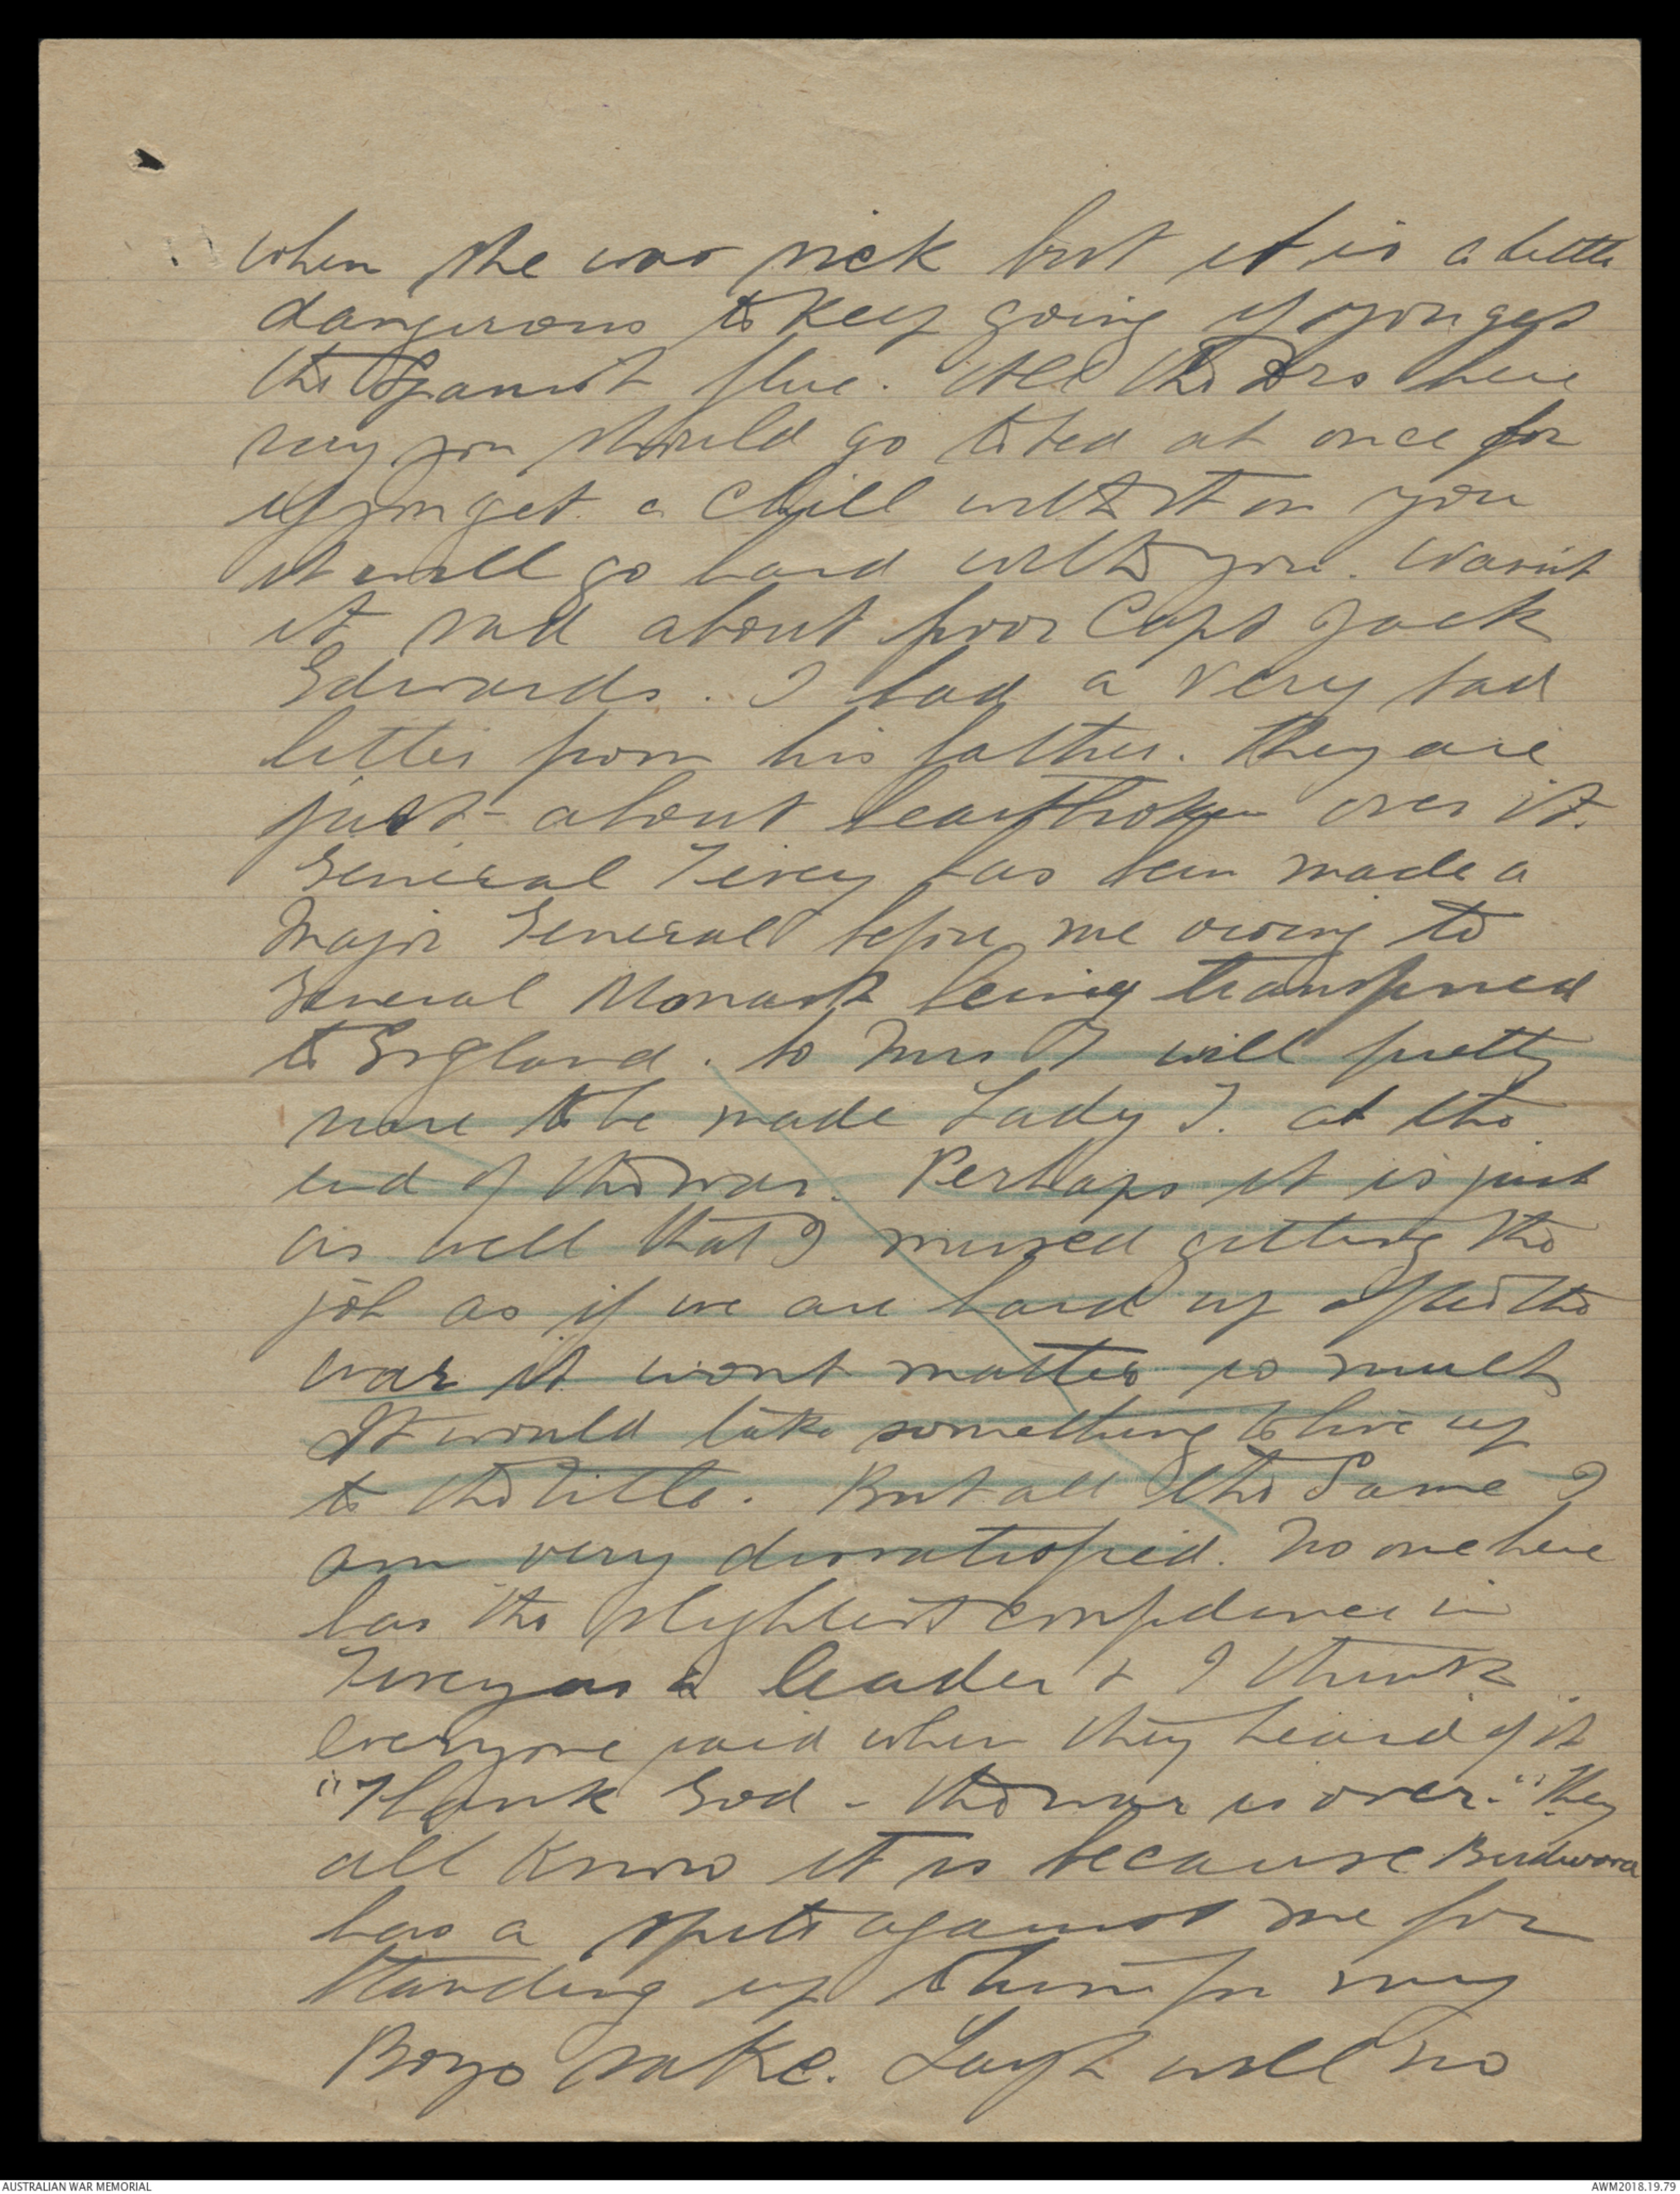 when she was sick but it is a little
dangerous to keep going if you get
the Spanish flue. All the Drs here
say you should go to bed at once for
if you get a chill with it on you
it will go hard with you. Wasn't
it sad about poor Capt Jack
Edwards. I had a very sad
letter from his father. They are
just about heartbroken over it.
General Tivey has been made a
Major General before me owing to
General Monash being transferred
to England. So Mrs T will pretty
sure to be made Lady T. at the
end of the war. Perhaps it is just
as well that I missed getting the
job as if we are hard up after the
war it wont matter so much
It would take something to live up
to the title. But all the same I
am very dissatisfied. No one here
has the slightest confidence in
Tivey as a leader & I think
everyone said when they heard of it
"Thank God - the war is over." They
all know it is because Birdwood
has a spite against me for
standing up to him for my
Boys sake. Laugh will no